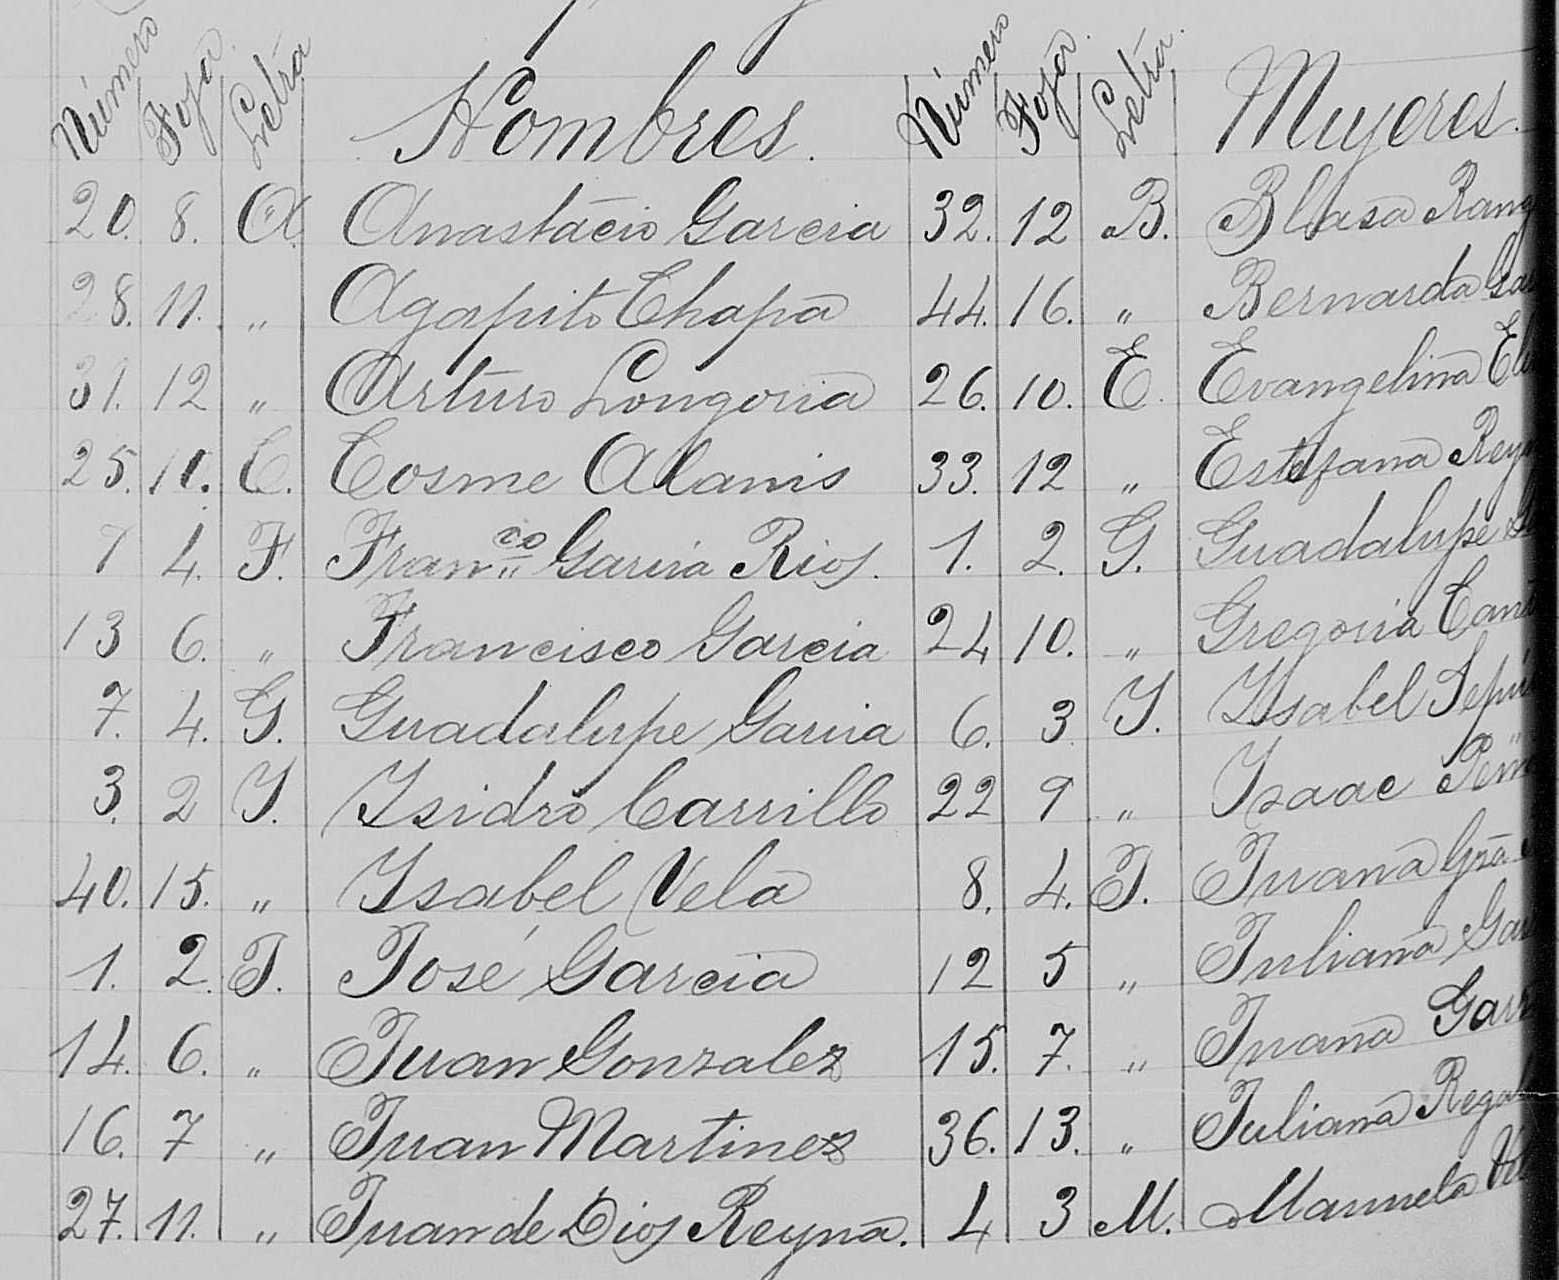 Número Foja Letra Hombres. Número Foja Letra Mujeres.
20. 8. A. Anastacio Garcia 32. 12 B. Blasa
28. 11. " Agapito Chapa 44. 16. " Bernarda
31. 12 " Arturo Longoria 26. 10. E. Evangelina
25. 10. C. Cosme Alanis 33. 12 " Estefana
4. F. Franco Garcia Rios. 1. 2. G. Guadalupe
13 6. " Francisco Garcia 24 10. "  Gregoria
7. 4. G. Guadalupe Garcia 6. 3 Y. Ysabel
3. 2 Y. Ysidro Carrillo 22 9 " Ysaac
40. 15. " Ysabel Vela 8. 4. J. Juana
1. 2. J. José Garcia 12 5 " Juliana
14. 6. " Juan Gonzalez 15. 7. " Juana
16. 7 " Juan Martinez 36. 13. " Juliana
27. 11. " Juan de Dios Reyna. 4 3 M. Manuela